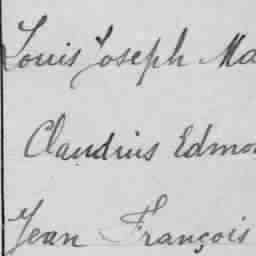 Louis Joseph Ma
Claudius Edmo
Jean François